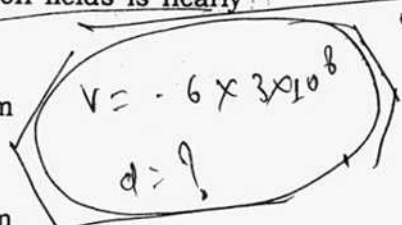 fields is nearly
m
V = .6 × 3×10⁸
d = ?
m